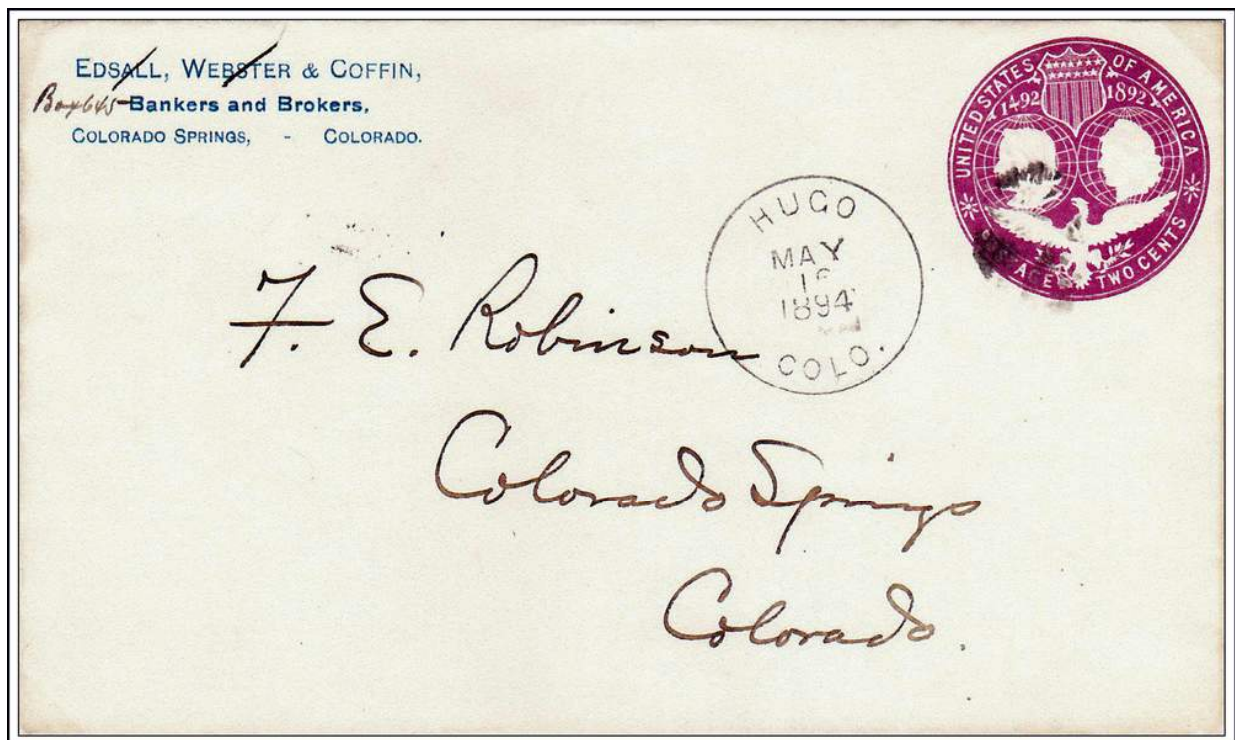 EDSALL, WEBSTER & COFFIN,
Box 645 Bankers and Brokers,
COLORADO SPRINGS, - COLORADO.
UNITED STATES OF AMERICA
1492 1892
TWO CENTS
HUGO
MAY
1894
COLO.
F. E. Robinson
Colorado Springs
Colorado.